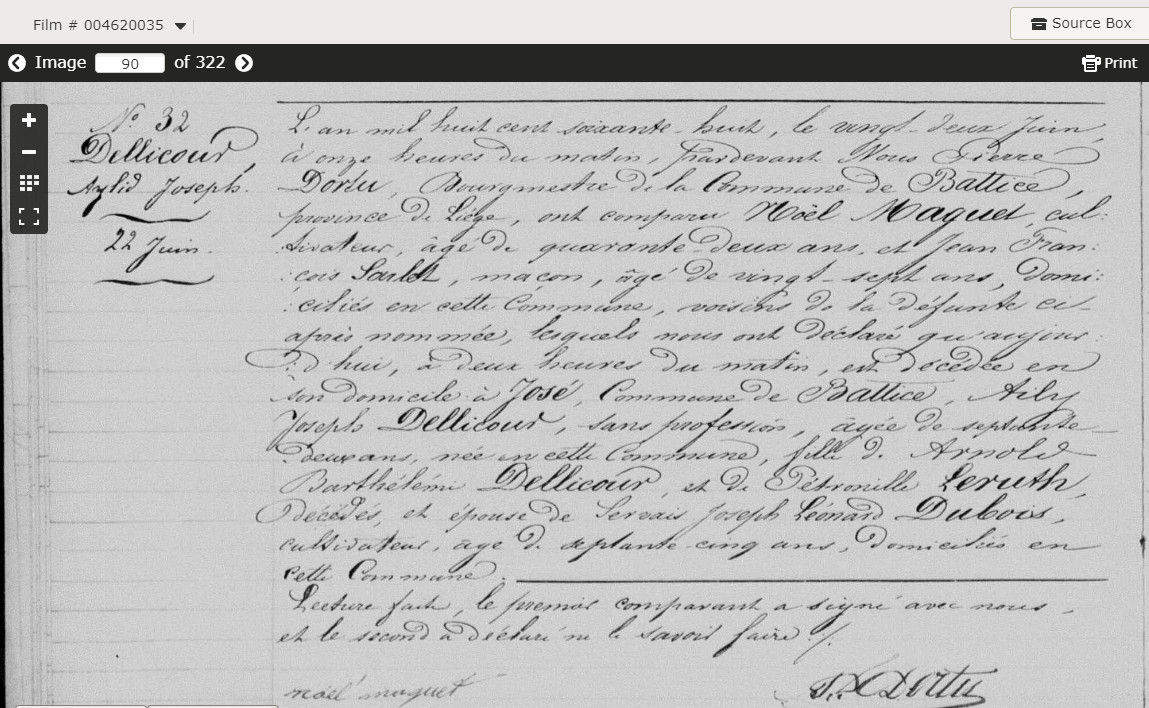 Film # 004620035
Source Box
Image 90 of 322
Print
N.º 32
Dellicour,
Aylid Joseph.
22 Juin.
L'an mil huit cent soixante-huit, le vingt-deux Juin,
à onze heures du matin, Pardevant Nous Pierre
Dortu, Bourgmestre de la Commune de Battice,
province de Liège, ont comparu Noël Maquet, cul:
:tivateur, âgé de quarante-deux ans, et Jean Fran:
:cois Sarlet, maçon, âgé de vingt-sept ans, domi:
:ciliés en cette Commune, voisins de la défunte ci-
après nommée, lesquels nous ont déclaré qu'aujour:
:d'hui, à deux heures du matin, est décédée en
son domicile à José, Commune de Battice, Aily
Joseph Dellicour, sans profession, âgée de septante-
deux ans, née en cette Commune, fille de Arnold
Barthélémi Dellicour, et de Pétronille Leruth,
décédés, et épouse de Servais Joseph Léonard Dubois,
cultivateur, âgé de septante-cinq ans, domiciliés en
cette Commune.
Lecture faite, le premier comparant a signé avec nous,
et le second a déclaré ne le savoir faire./.
noël maquet
Dortu